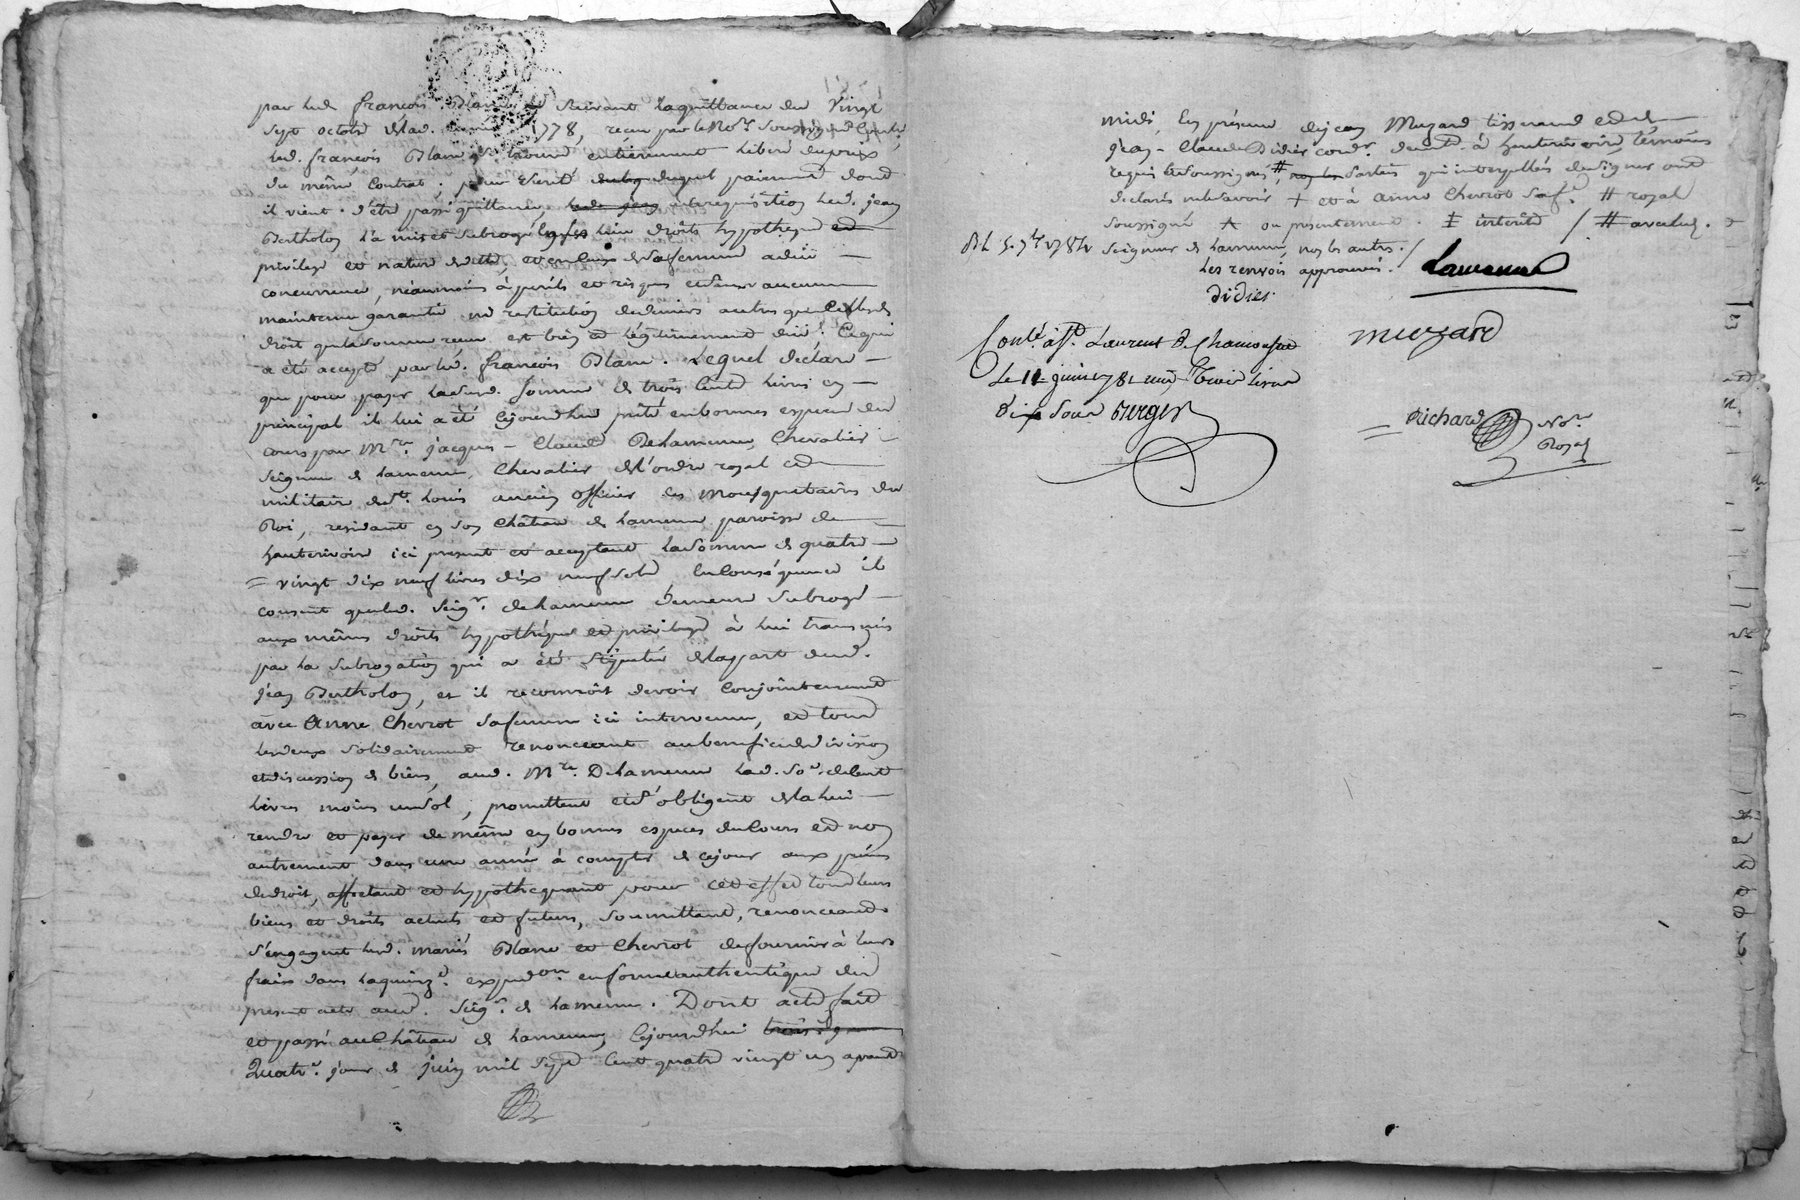 par led. françois Blanc suivant la quittance du vingt
sept octobre 1778, recue par le No.re soussigné
led. françois Blanc se trouve entièrement libéré du prix
du même contrat. pour sureté duquel paiement dont
il vient d'être passé quittance, a la requisition led. jean
Bertholon l'a mis et subrogé droits hypotheque et
privilege et nature de dette, et en ceux de sa femme
concurrence, néanmoins à perils et risques et sans aucune
maintenue garantie ne restitution de deniers autres que celles de
droit que la somme recue est bien et légitimement due. Ce qui
a été accepté par led. françois Blanc. Lequel déclare
que pour payer lad. somme de trois cent livres en
principal il lui a été cejourdhui prêté en bonnes especes du
cours par M.re jacques - Claude Delamenue, Chevalier
Seigneur de Lamenue, Chevalier de l'ordre royal et
militaire de St. Louis ancien officier des Mousquetaires du
Roi, residant en son Château de Lamenue paroisse de
hauterivoire ici present et acceptant la somme de quatre
= vingt dix neuf livres dix neuf sols, en conséquence il
consent que led. Seig.r delamenue demeure subrogé
aux mêmes droits hypothéque et privilege à lui transmis
par la subrogation qui a été stipulée de la part dud.
jean Bertholon, et il reconnoit devoir conjointement
avec Anne Cheviot sa femme ici intervenue, et tous
les deux solidairement renonceant au benefice de division
et discussion de biens, aud. M.re Delamenue lad. so.e de cent
livres moins un sol, promettent et s'obligent de la lui
rendre et payer de même en bonnes especes du cours et non
autrement dans une année à compter de cejour aux peines
de droit, affectant et hypothequant pour cet effet tous leurs
biens et droits actuels et futurs, soumettant, renonceant
s'engagent led. mariés Blanc et Cheviot de fournir à leurs
frais dans la quinz.e exped.on en forme authentique du
present acte aud. Seig.r de Lamenue. Dont acte fait
et passé au Château de Lamenue, cejourdhui
Quatr.e jour de juin mil sept cent quatre vingt un avant
midi, En présence de jean Muzard tisserand et de
jean - Claude Didier cord.r demt. à hauterivoire, témoins
requis et soussignés #, parties qui interpellés de signer ont
déclaré ne le savoir + et à anne Cheviot sa f.e # royal
soussigné ou presentement. ‡ interité / # avec led.
Seigneur de Lamenue, non les autres. /
les renvois approuvés. / Lamenue
didier
Muzard
Contlé à St. Laurent de Chamousset
Le 11 juin 1781 recu trois livres
dix sous Berger
Richard No.re
Royal